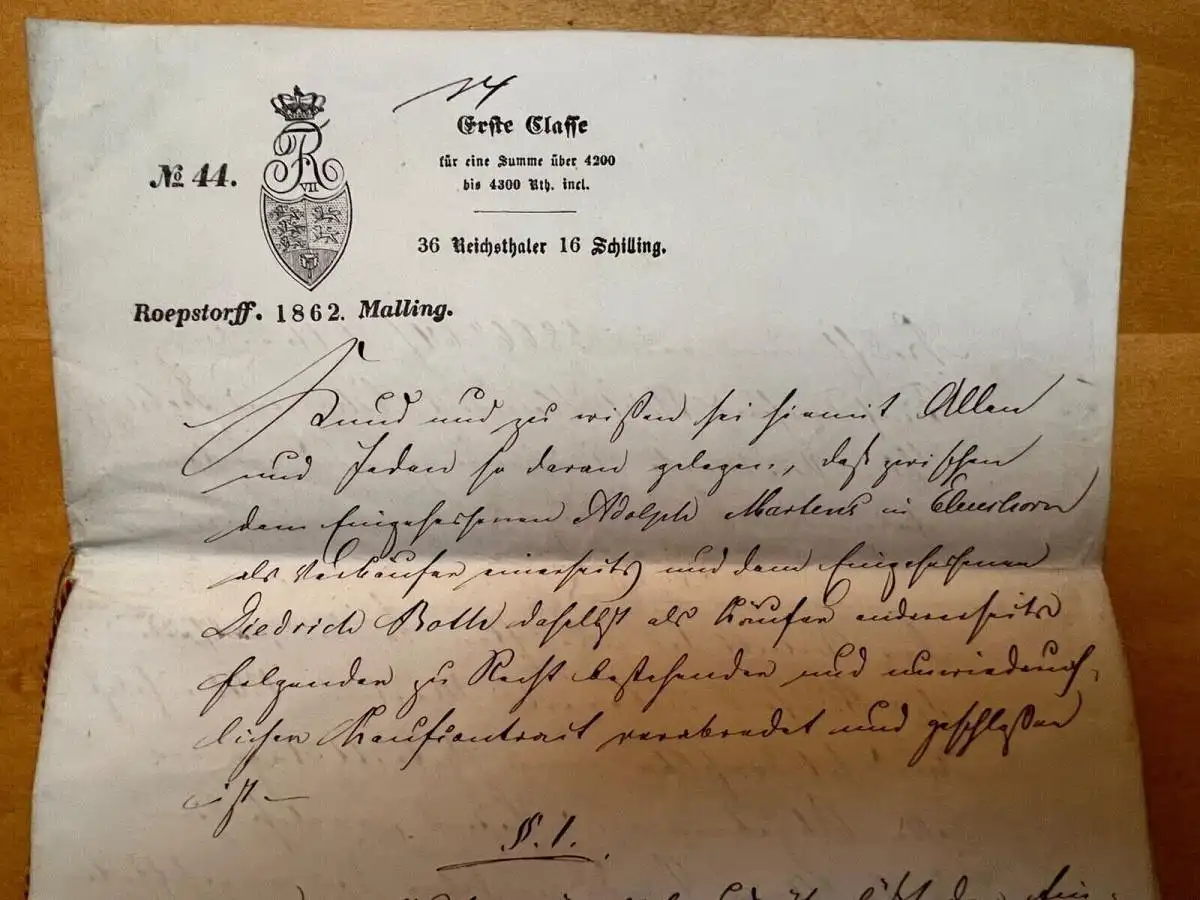 14
Erste Classe
für eine Summe über 4200
bis 4300 Rth. incl.
№ 44.
FR
VII
36 Reichsthaler 16 Schilling.
Roepstorff. 1862. Malling.
Kund und zu wißen sei hiemit Allen
und Jeden so daran gelegen, daß zwischen
dem Eingesessenen Adolph Martens in Elmshorn
als Verkäufer einerseits und dem Eingesessenen
Diedrich Both daselbst als Käufer andererseits
folgender zu Recht bestehender und unwiederruf-
licher Kaufcontract verabredet und geschloßen
ist
§. 1.